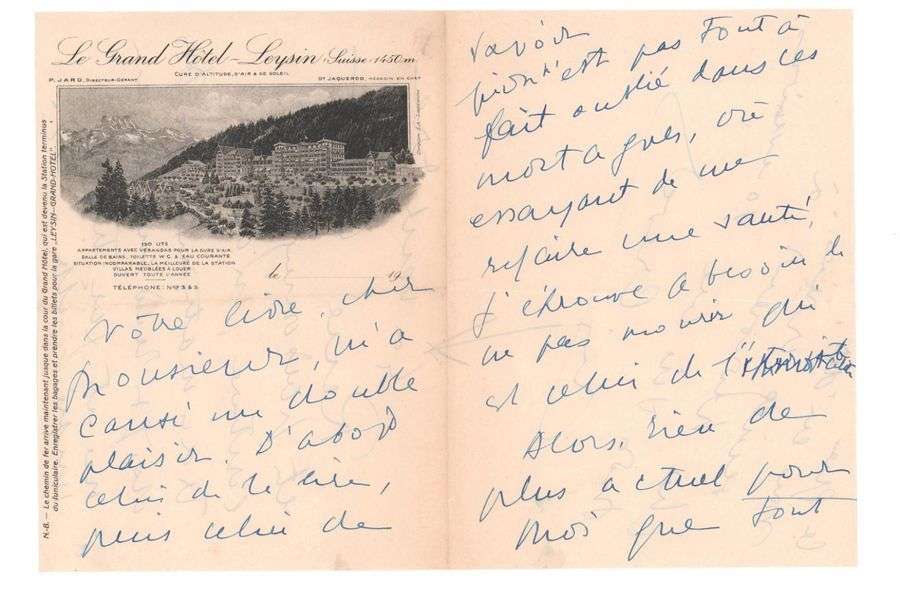 Le Grand Hôtel - Leysin (Suisse) 1450m
CURE D'ALTITUDE, D'AIR & DE SOLEIL
P. JARD, DIRECTEUR-GÉRANT
Dr JAQUEROD, MÉDECIN EN CHEF
150 LITS
APPARTEMENTS AVEC VERANDAS POUR LA CURE D'AIR
SALLE DE BAINS, TOILETTE W.C. & EAU COURANTE
SITUATION INCOMPARABLE, LA MEILLEURE DE LA STATION
VILLAS MEUBLÉES A LOUER
OUVERT TOUTE L'ANNÉE
TÉLÉPHONE: Nos 3 & 5
le 19
N.-B. — Le chemin de fer arrive maintenant jusque dans la cour du Grand Hôtel, qui est devenu la Station terminus
du funiculaire. Enregistrer les bagages et prendre les billets pour la gare „LEYSIN-GRAND-HOTEL".
Votre livre, cher
Monsieur, m'a
causé un double
plaisir. D'abord
celui de le lire,
puis celui de
savoir
qu'on n'est pas tout à
fait oublié dans les
montagnes, où
essayant de me
refaire une santé,
j'éprouve le besoin de
ne pas mourir qui
est celui de
Alors, rien de
plus actuel pour
moi que tout